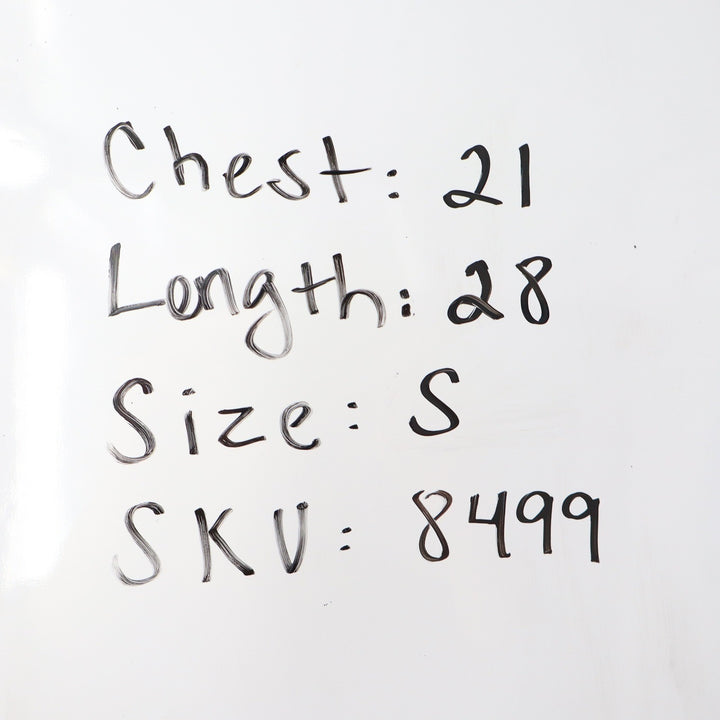 Chest: 21
Length: 28
Size: S
SKU: 8499